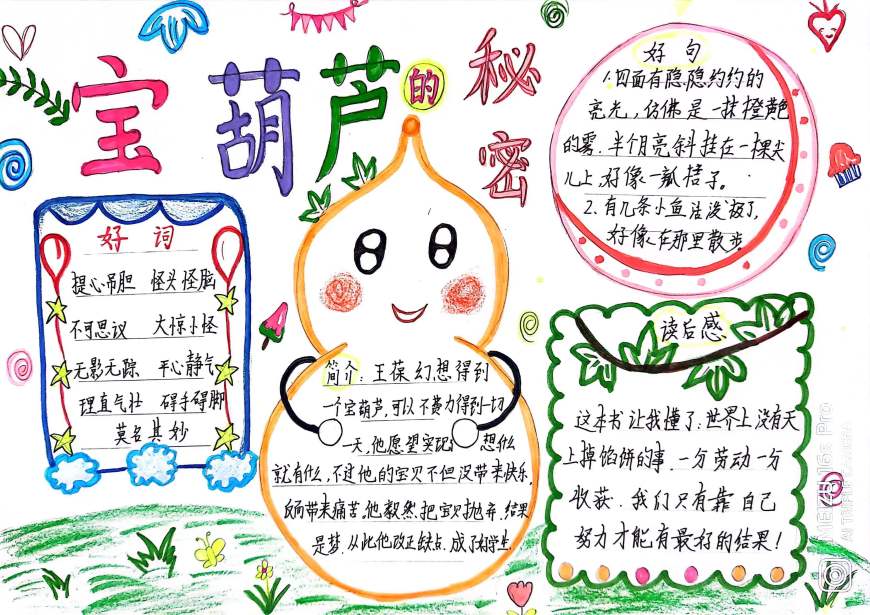 宝葫芦的秘密
好词
提心吊胆 怪头怪脑
不可思议 大惊小怪
无影无踪 平心静气
理直气壮 碍手碍脚
莫名其妙
简介:王葆幻想得到
一个宝葫芦,可以不费力得到一切
一天,他愿望实现 想什么
就有什么,不过他的宝贝不但没带来快乐,
反而带来痛苦.他毅然把宝贝抛弃.结果
是梦.从此他改正缺点.成了好学生.
好句
1.四面有隐隐约约的
亮光,仿佛是一抹橙黄色
的雾.半个月亮斜挂在一棵尖
儿上,好像一瓤桔子。
2.有几条小鱼活泼极了,
好像在那里散步
读后感
这本书让我懂了:世界上没有天
上掉馅饼的事.一分劳动一分
收获.我们只有靠自己
努力才能有最好的结果!
MEIZU 16s Pro